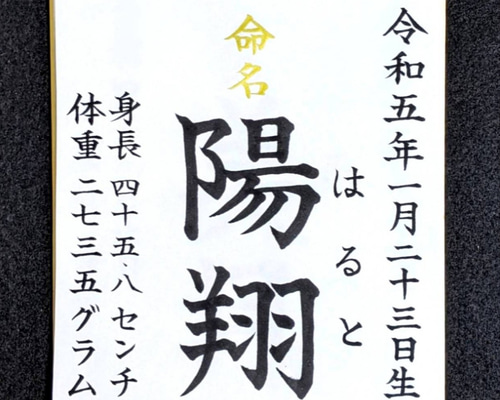 令和五年一月二十三日生
命名
陽翔
はると
身長 四十五.八センチ
体重 二七三五グラム